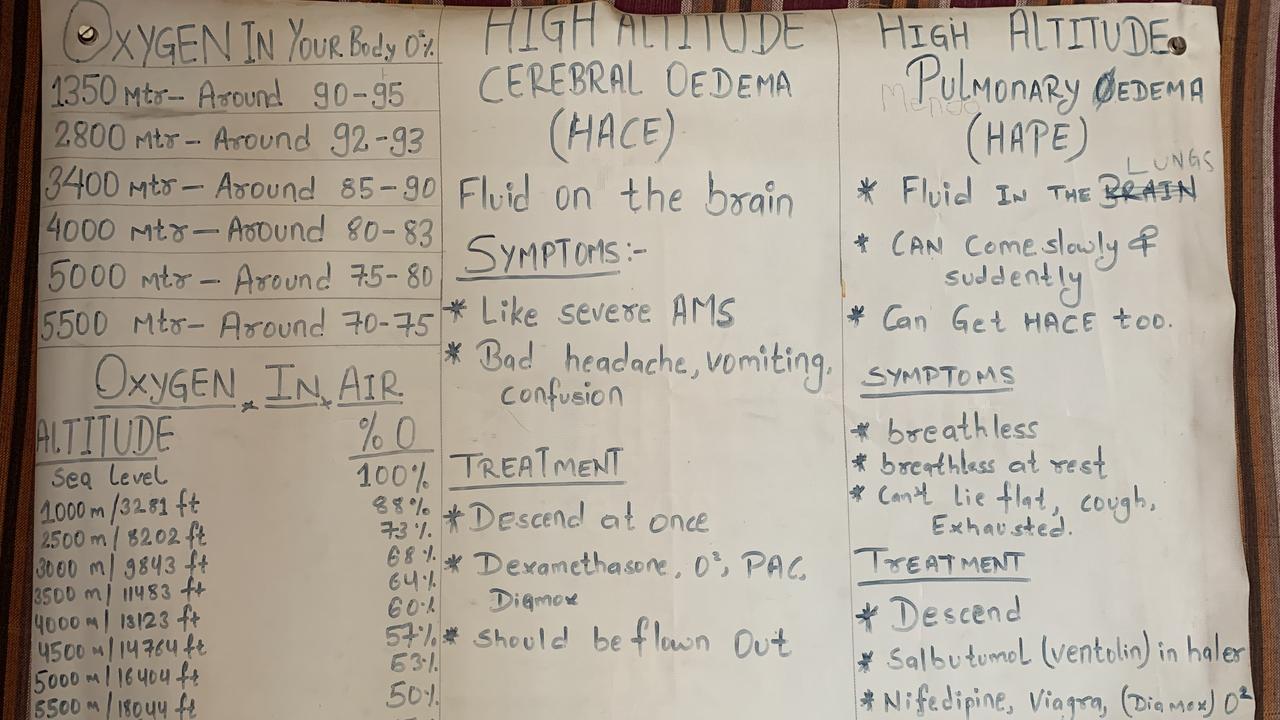 OXYGEN IN YOUR Body O²%
1350 Mtr – Around 90-95
2800 Mtr – Around 92-93
3400 Mtr – Around 85-90
4000 Mtr – Around 80-83
5000 mtr – Around 75-80
5500 Mtr – Around 70-75
OXYGEN IN AIR
ALTITUDE % O
Sea Level 100%
1000 m/3281 ft 88%
2500 m/8202 ft 73%
3000 m/9843 ft 68%
3500 m/11483 ft 64%
4000 m/13123 ft 60%
4500 m/14764 ft 57%
5000 m/16404 ft 53%
5500 m/18044 ft 50%
HIGH ALTITUDE
CEREBRAL OEDEMA
(HACE)
Fluid on the brain
SYMPTOMS:-
* Like severe AMS
* Bad headache, vomiting,
confusion
TREATMENT
* Descend at once
* Dexamethasone, O², PAC,
Diamox
* Should be flown Out
HIGH ALTITUDE
PULMONARY OEDEMA
(HAPE)
LUNGS
* Fluid IN THE BRAIN
* CAN Come slowly &
suddently
* Can Get HACE too.
SYMPTOMS
* breathless
* breathless at rest
* Can't lie flat, cough,
Exhausted.
TREATMENT
* Descend
* Salbutumol (ventolin) in haler
* Nifedipine, Viagra, (Diamox) O²